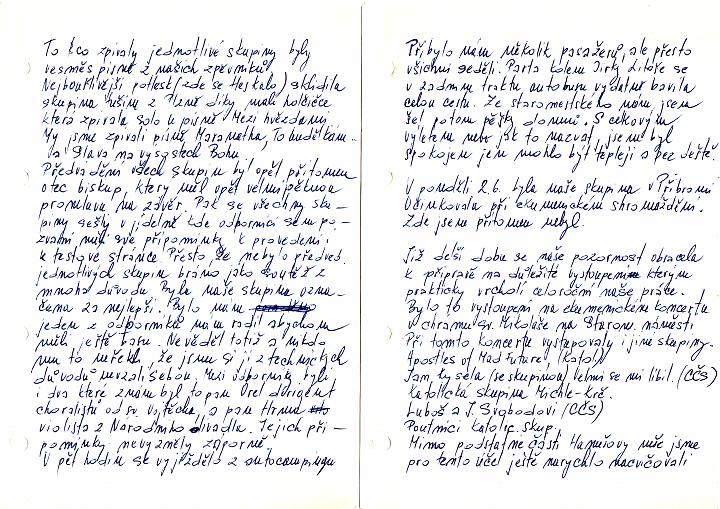 To co zpívaly jednotlivé skupiny byly
vesměs písně z našich zpěvníků.
Nejbouřlivější potlesk (zde se tleskalo) sklidila
skupina ním z díky malé holčičce
která zpívala solo v písni Mezi hvězdami
My jsme zpívali písně Maranatha, To budětkám..
la Sláva na výsostech Bohu
Předvádění všech skupin byl opět přítomen
otec biskup, který měl opět velmi pěknou
promluvu na závěr. Pak se všechny sku-
piny sešly v jídelně kde odborníci sem po-
zvaní měli své připomínky k provedení i
k textové stránce. Přesto, že nebylo předved.
jednotlivých skupin bráno jako soutěž z
mnoha důvodů byla naše skupina ozna-
čena za nejlepší. Bylo nám
jeden z odborníků nám radil abychom
měli ještě basu. Nevěděl totiž a nikdo
mu to neřekl, že jsme si ji z technických
důvodů nevzali sebou. Mezi odborníky byli
i dva které znám byl to pan Orel dirigent
choralistů od sv. Vojtěcha, a pan Hruza
violista z Národního divadla. Jejich při-
pomínky nevyzněly záporně.
V pět hodin se vyjíždělo z autocampingu
Přibylo nám několik pasažerů, ale přesto
všichni seděli. Parta kolem Jirky se
v zadním traktu autobusu vydatně bavila
celou cestu. Ze staroměstského nám. jsem
šel potom pěšky domů. S celkovým
výletem nebo jak to nazvat, jsem byl
spokojen jen mohlo být tepleji a bez deště.
V pondělí 2.6. byla naše skupina v Příbrami
Účinkovala při ekumenickém shromáždění.
Zde jsem přítomen nebyl.
Již delší dobu se naše pozornost obracela
k přípravě na důležité vystoupením kterým
prakticky vrcholí celoroční naše práce.
Bylo to vystoupení na ekumenickém koncertu
v chrámu sv. Mikuláše na Starom. náměstí
Při tomto koncertu vystupovaly i jiné skupiny.
Apostles of Mad Future (katol)
Jam, kysela (se skupinou) velmi se mi líbil. (CČS)
Katolická skupina Michle-Krč.
Luboš a J. Svobodovi (CČS)
Poutníci katolic. skup.
Mimo podstatné části Hanušovy mše jsme
pro tento účel ještě narychlo nacvičovali